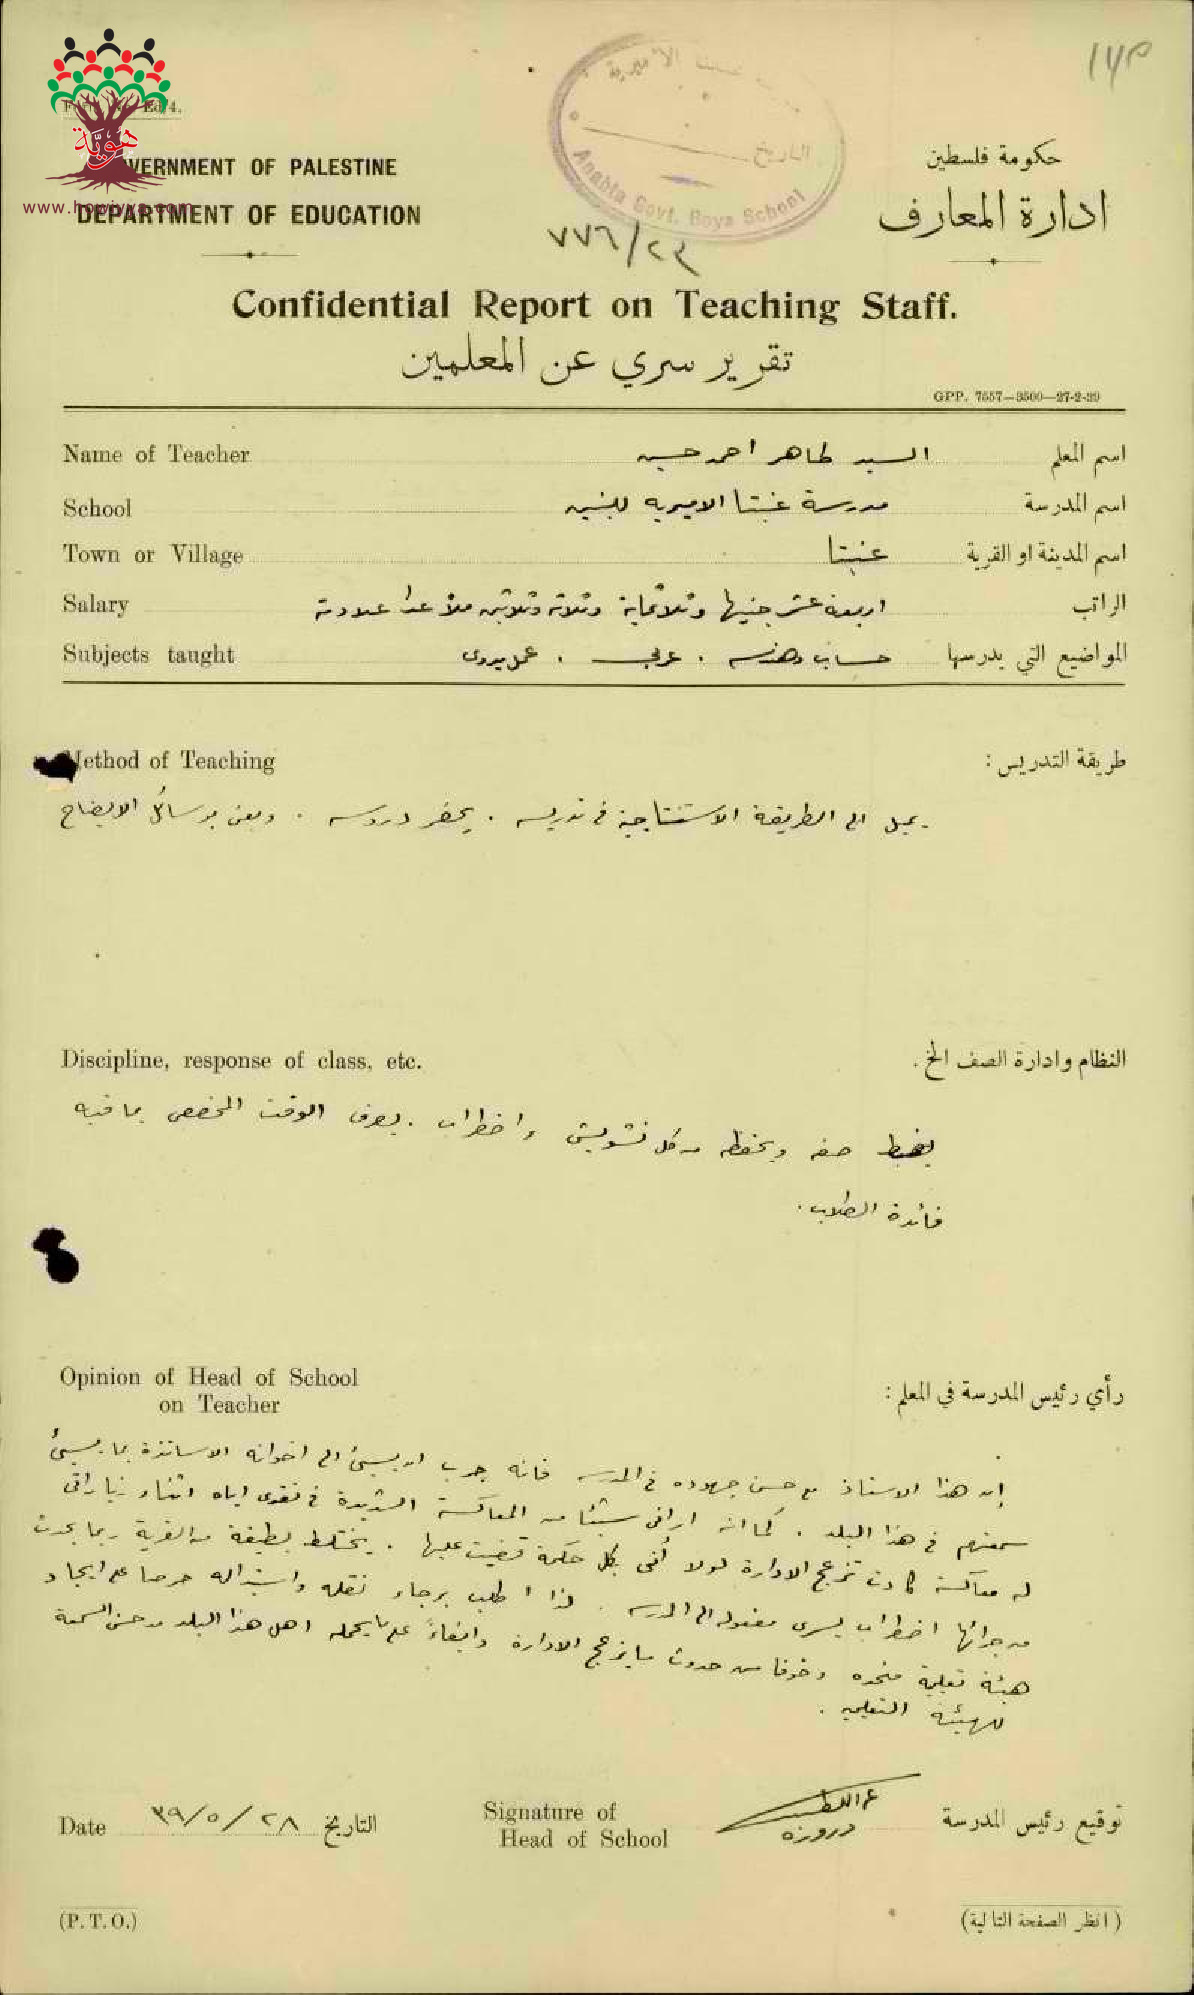 ١٢٥
هوية
www.howiyya.com
Ed/4.
GOVERNMENT OF PALESTINE
DEPARTMENT OF EDUCATION
حكومة فلسطين
ادارة المعارف
التاريخ
Anabta Govt. Boys School
٧٧٦/٢٣
Confidential Report on Teaching Staff.
تقرير سري عن المعلمين
GPP. 7557—3500—27-2-39
Name of Teacher السيد طاهر احمد حسين اسم المعلم
School مدرسة عنبتا الاميرية للبنين اسم المدرسة
Town or Village عنبتا اسم المدينة او القرية
Salary اربعة عشر جنيها وثلاثماية وثلاثة وثلاثين ملا عدا علاوته الراتب
Subjects taught حساب وهندسه . عربي . عمل يدوي المواضيع التي يدرسها
Method of Teaching طريقة التدريس :
يميل الى الطريقة الاستنتاجية في تدريسه . يحضر دروسه . ويعنى بوسائل الايضاح
Discipline, response of class, etc. النظام وادارة الصف الخ .
يضبط صفه ويحفظه من كل تشويش واضطراب . يصرف الوقت المخصص بما فيه
فائدة الطلاب .
Opinion of Head of School
on Teacher
رأي رئيس المدرسة في المعلم :
إن هذا الاستاذ مع حسن جهوده في المدرسه فانه جرب ان يسيئ الى اخوانه الاساتذة بما يسيئ
سمعتهم في هذا البلد . كما انه اراني شيئا من المعاكسة الشديدة في نقدي اياه اثناء زياراتي
له معاكسة كادت تزعج الادارة لولا أنني بكل حكمة قضيت عليها . يختلط بطبقة من القرية ربما يحدث
من جرائها اضطراب يسري مفعوله الى المدرسه . لذا اطلب برجاء نقله واستبداله حرصا على ايجاد
هيئة تعليمية متحده وخوفا من حدوث ما يزعج الادارة وابقاءً على ما يحمله اهل هذا البلد من حسن السمعة
للهيئة التعليميه .
Date ٣٩/٥/٢٨ التاريخ
Signature of
Head of School
عبد اللطيف
دروزه
توقيع رئيس المدرسة
(P. T. O.)
( انظر الصفحة التالية)